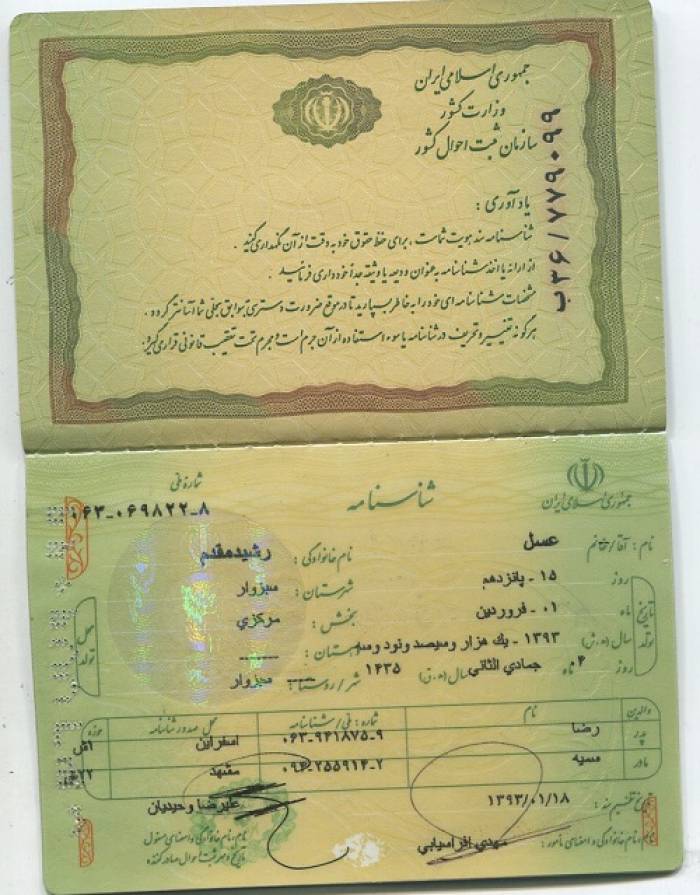 جمهوری اسلامی ایران
وزارت کشور
سازمان ثبت احوال کشور
ب۳۶/۷۷۹۰۹۹
یادآوری :
شناسنامه سند هویت شماست ، برای حفظ حقوق خود به دقت از آن نگهداری کنید .
از ارائه یا اخذ شناسنامه به عنوان ودیعه یا وثیقه جداً خودداری فرمائید .
مشخصات شناسنامه ای خود را به خاطر بسپارید تا در موقع ضرورت دسترسی به سوابق سجلی شما آسانتر گردد .
هرگونه تغییر و تحریف در شناسنامه یا سوء استفاده از آن جرم است و مجرم تحت تعقیب قانونی قرار می گیرد .
جمهوری اسلامی ایران
شناسنامه
شماره ملی
۰۶۳-۰۶۹۸۲۲-۸
نام : آقا/خانم عسل
نام خانوادگی : رشیدمقدم
تاریخ تولد
روز ۱۵ - پانزدهم
شهرستان : سبزوار
ماه ۰۱ - فروردین
بخش : مرکزي
سال (ه.ش) ۱۳۹۳ - يك هزار وسيصد ونود وسه
دهستان : ------
روز ۰۴ ماه جمادي الثاني سال (ه.ق) ۱۴۳۵
شهر/روستا : سبزوار
محل تولد
والدین نام شماره : ملی/شناسنامه محل صدور شناسنامه حوزه
پدر رضا ۰۶۳-۹۴۱۸۷۵-۹ اسفراین
مادر ۲-۲۵۵۹۱۴ مشهد
تاریخ تنظیم سند : ۱۳۹۳/۰۱/۱۸
علیرضا وحیدیان
نام، نام خانوادگی و امضای مأمور : مهدي افراسيابي
نام، نام خانوادگی و امضای مسئول
تاریخ و مهر ثبت احوال صادرکننده